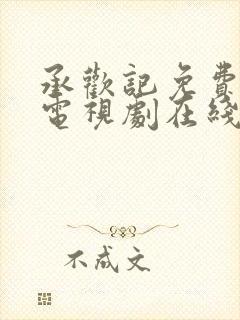 承歡記免費
電視劇在綫
不成文